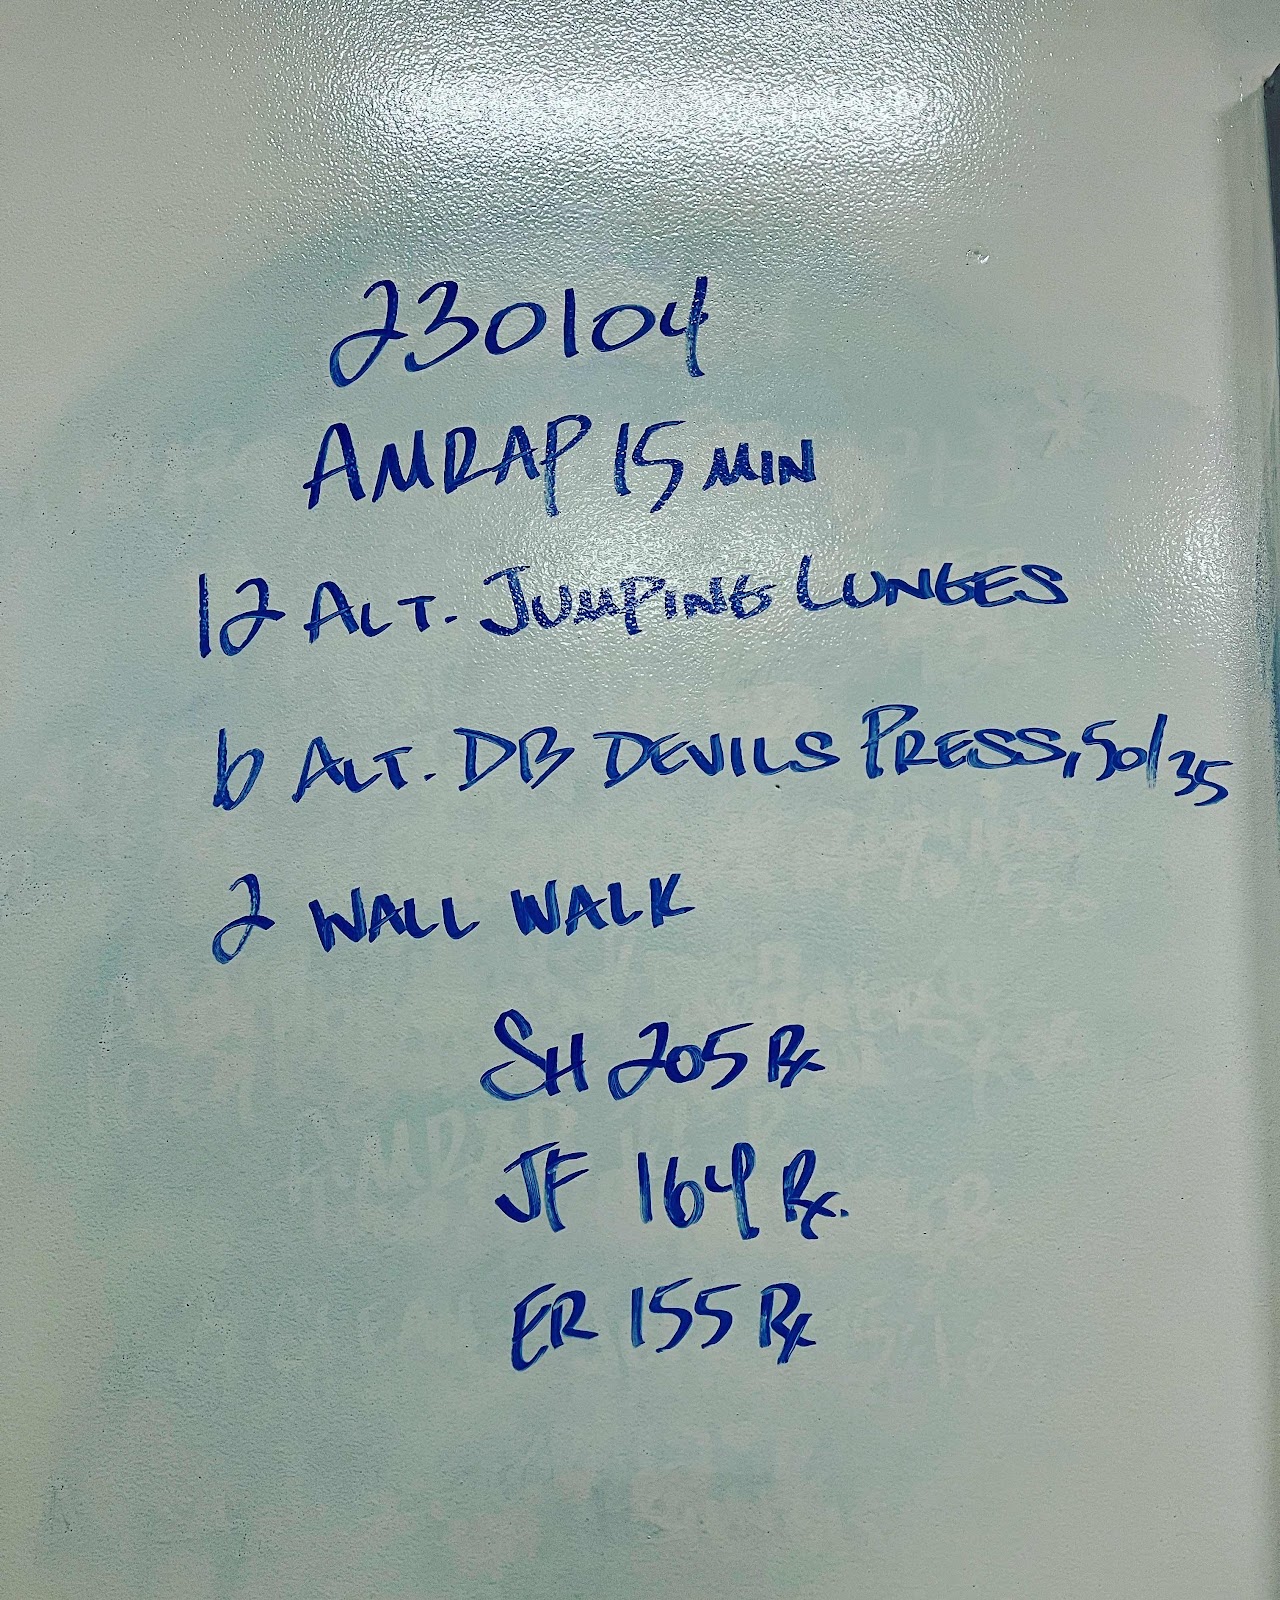 230104
AMRAP 15 MIN
12 ALT. JUMPING LUNGES
6 ALT. DB DEVILS PRESS, 50/35
2 WALL WALK
SH 205 Rx
JF 164 Rx.
ER 155 Rx